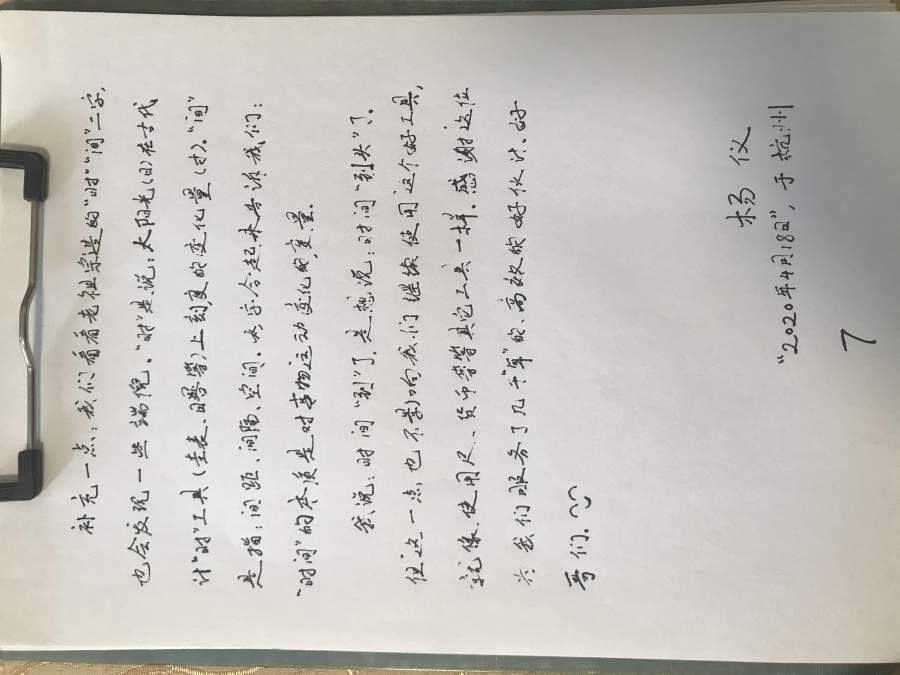 补充一点：我们看看老祖宗造的“时”“间”二字，
也会发现一些端倪。“时”是说：太阳光(日)在古代
计“时”工具(圭表、日晷等)上刻度的变化量(寸)。“间”
是指：间距、间隔、空间。两字合起来告诉我们：
“时间”的本质是对事物运动变化的度量。
我说：时间“到”了，是想说：时间“到头”了。
但这一点，也不影响我们继续使用这个好工具，
就像使用尺、货币等等其它工具一样。感谢这位
为我们服务了几千“年”的、高效的好伙计、好
哥们。
杨仪
“2020年4月18日”，于杭州
7